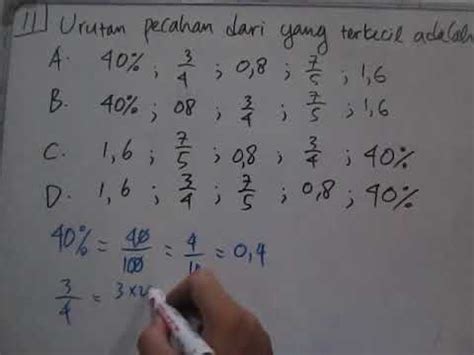 11 Urutan pecahan dari yang terkecil adalah
A. 40% ; 3/4 ; 0,8 ; 7/5 ; 1,6
B. 40% ; 08 ; 3/4 ; 7/5 ; 1,6
C. 1,6 ; 7/5 ; 0,8 ; 3/4 ; 40%
D. 1,6 ; 3/4 ; 7/5 ; 0,8 ; 40%
40% = 40/100 = 4/10 = 0,4
3/4 = 3×